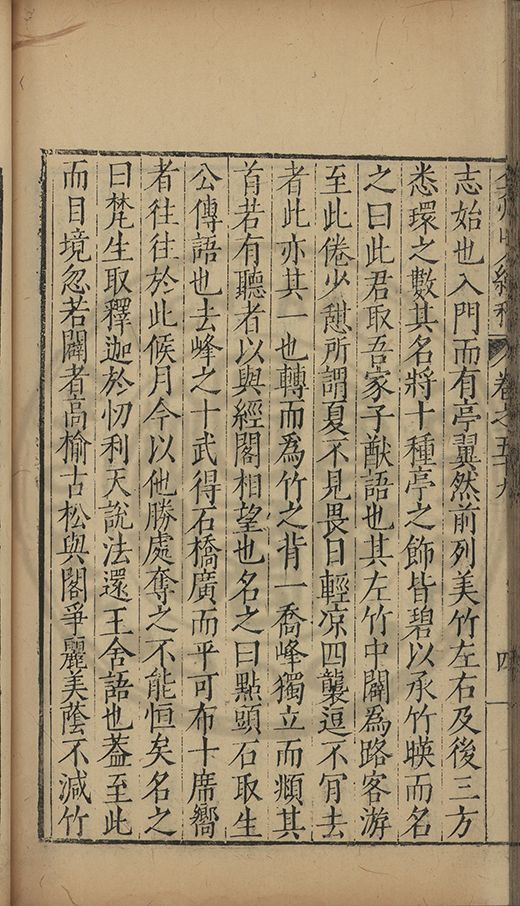 弇州山人續稿 卷之五十九 四
志始也入門而有亭翼然前列美竹左右及後三方
悉環之數其名將十種亭之飾皆碧以承竹暎而名
之曰此君取吾家子猷語也其左竹中闢爲路客游
至此倦少憇所謂夏不見畏日輕凉四襲逗不肎去
者此亦其一也轉而爲竹之背一喬峰獨立而頫其
首若有聽者以與經閣相望也名之曰點頭石取生
公傳語也去峰之十武得石橋廣而平可布十席嚮
者往往於此候月今以他勝處奪之不能恒矣名之
曰梵生取釋迦於忉利天說法還王舍語也葢至此
而目境忽若闢者高榆古松與閣爭麗美蔭不減竹